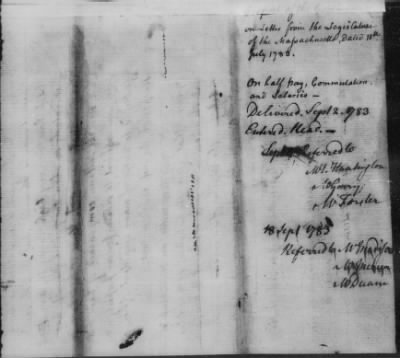 on Letter from the Legislature
of the Massachusetts, dated 11th
July 1783.
On half pay, Commutation
and Salaries —
Delivered, Sept 2. 1783
Entered, Read. —
Sept Referred to
Mr. Huntington
Mr Gerry
Mr Forster
18 Sept 1783
Referred to Mr Madison
Mr
Mr Duane